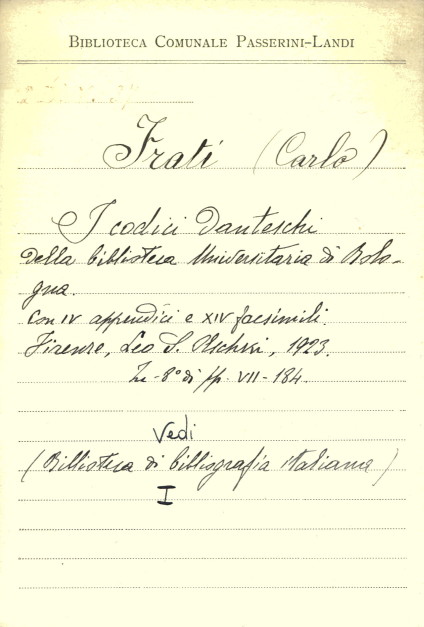 BIBLIOTECA COMUNALE PASSERINI-LANDI
Frati (Carlo)
I codici Danteschi
della biblioteca Universitaria di Bolo-
gna.
Con IV appendici e XIV facsimili.
Firenze, Leo S. Olschki, 1923.
In-8° di pp. VII-184.
Vedi
(Biblioteca di bibliografia italiana)
I